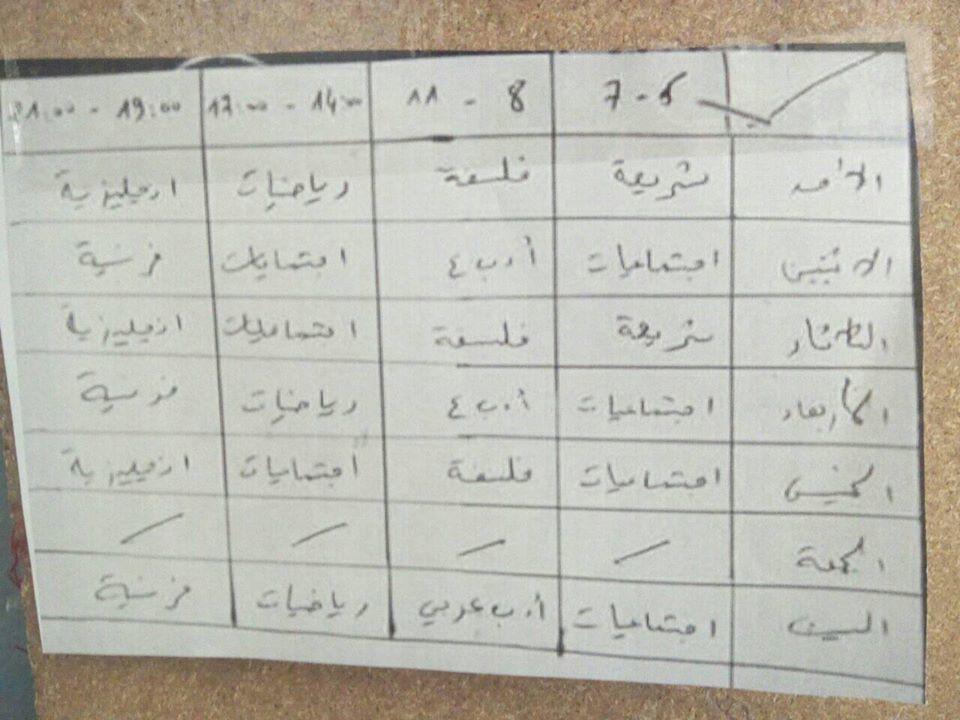 7-5 8 - 11 14:00 - 17:00 19:00 - 21:00
الأحد شريعة فلسفة رياضيات انجليزية
الاثنين اجتماعيات أدب ع اجتماعيات فرنسية
الثلاثاء شريعة فلسفة اجتماعيات انجليزية
الأربعاء اجتماعيات أدب ع رياضيات فرنسية
الخميس اجتماعيات فلسفة اجتماعيات انجليزية
الجمعة / / / /
السبت اجتماعيات أدب عربي رياضيات فرنسية